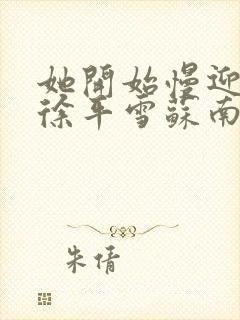 她開始慢迎
徐平雪蘇南
朱倩